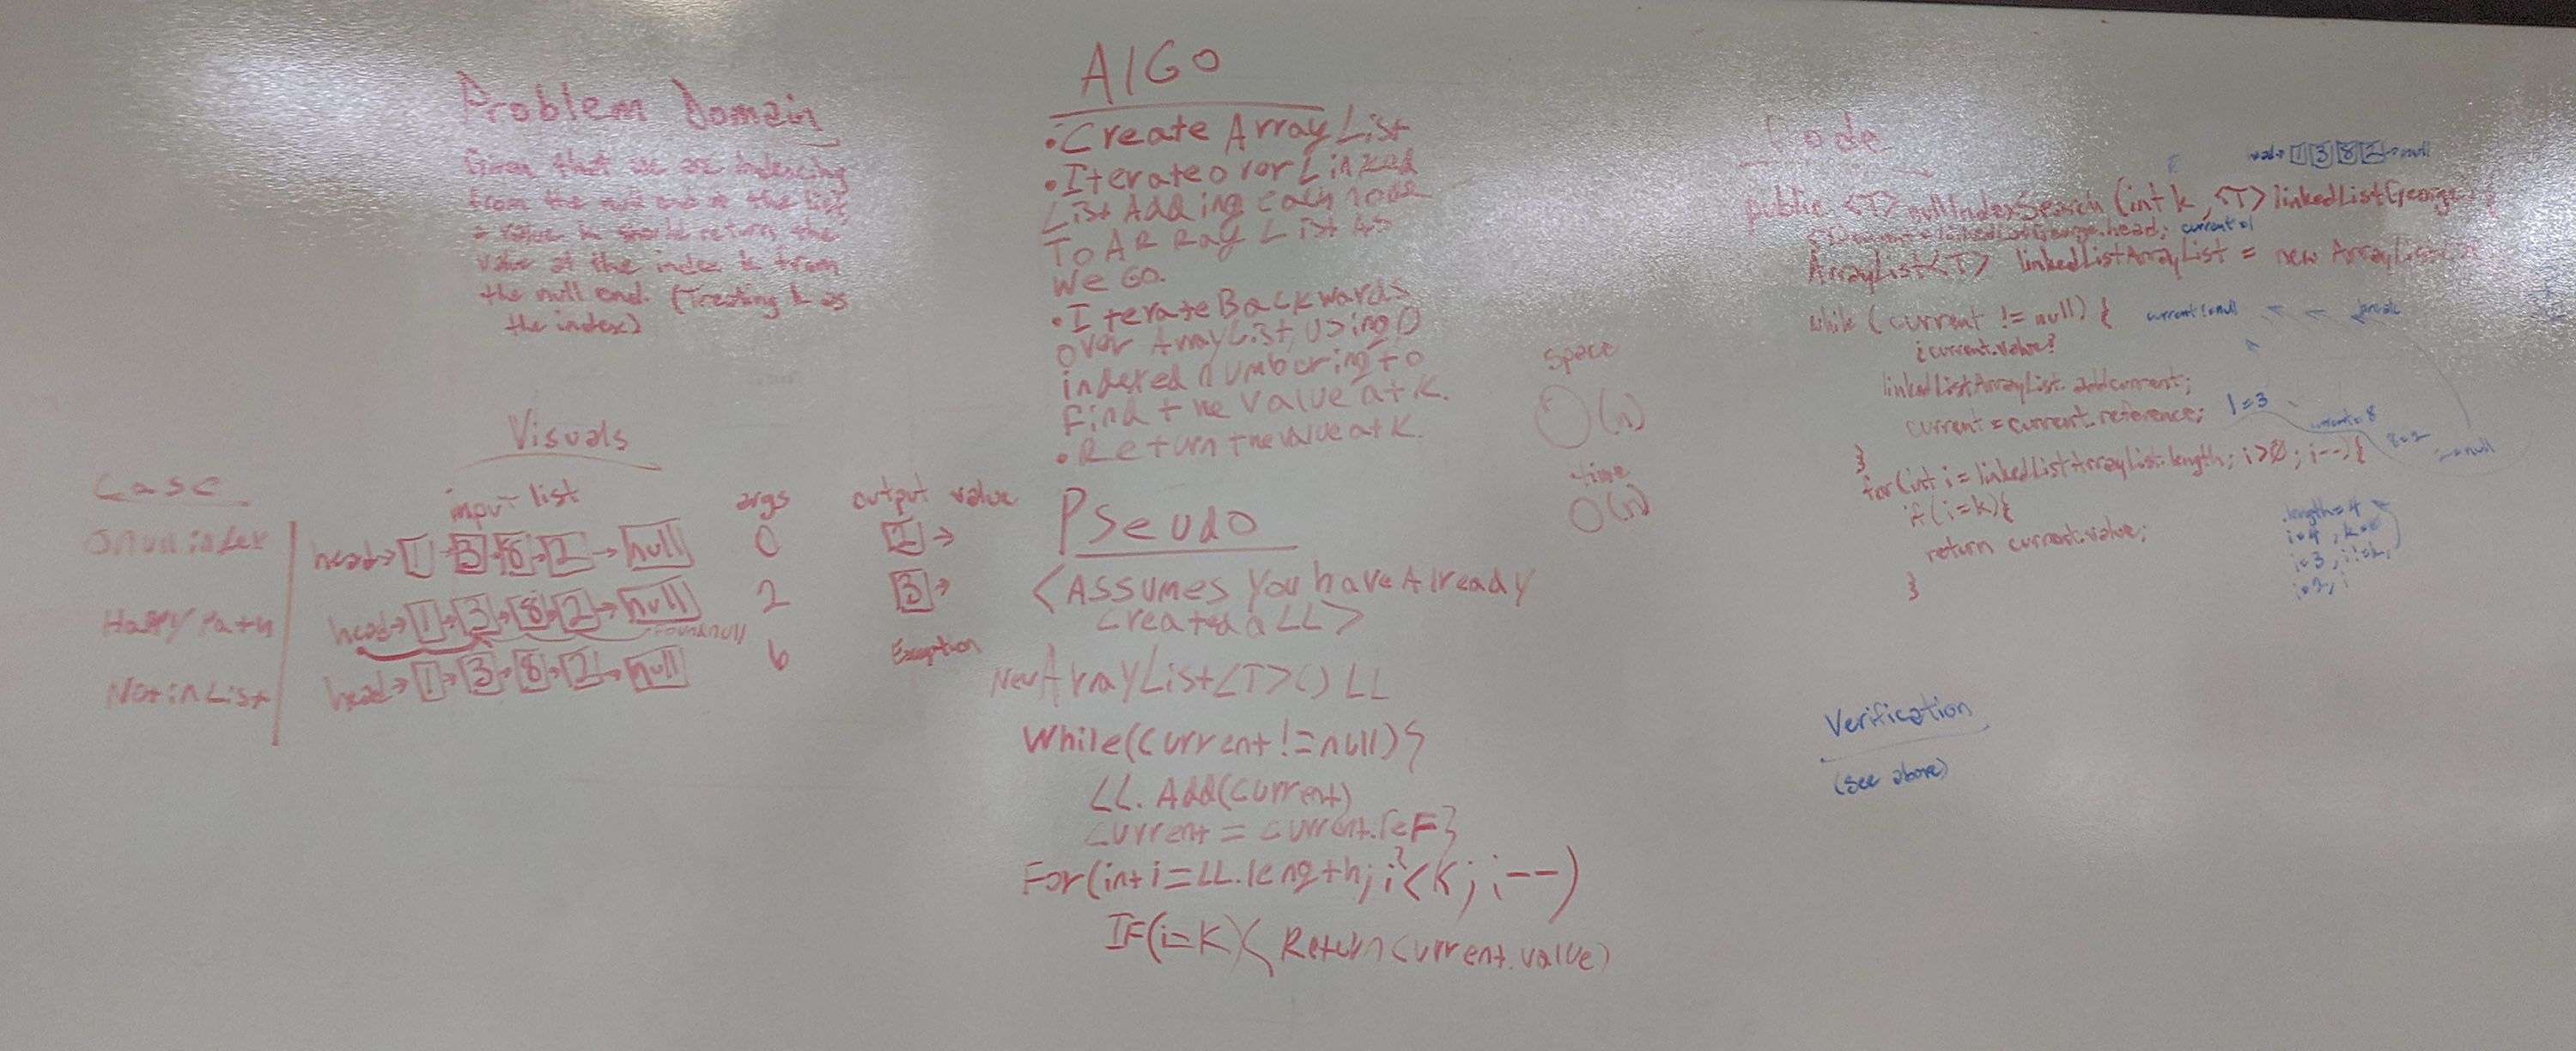 Problem Domain
Given that we are indexing
from the null end of the list
a value k should return the
value at the index k from
the null end. (Treating k as
the index)
Visuals
Case
input list
args
output value
0 null index
head→ 1 → 3 → 8 → 2 → null
0
2 →
Happy Path
head→ 1 → 3 → 8 → 2 → null
2
3 →
from null
Not in List
head→ 1 → 3 → 8 → 2 → null
6
Exception
AlGo
• Create Array List
• Iterate over Linked
List Adding each node
To ARRay List As
We Go.
• Iterate Backwards
over ArrayList, Using 0
indexed numbering to
find the value at K.
• Return the value at K.
Space
O(n)
time
O(n)
Pseudo
<Assumes You have Already
Created a LL>
New ArrayList<T>() LL
While(Current != null){
LL. Add(current)
Current = current.reF}
For(int i = LL.length; i ? < K; i--)
IF(i=K){ Return current.value)
Code
head→ 1 3 8 2 → null
public <T> nullIndexSearch (int k, <T> linkedListGeorge
linkedListGeorge.head; current=1
ArrayList<T> linkedListArrayList = new ArrayList
while (current != null) { current != null break
¿current.value?
linkedListArrayList. add current;
current = current.reference; 1=3
current=8
8=2
2=null
}
for (int i = linkedListArrayList.length; i>0; i--){
if (i=k){
return current.value;
}
.length=4
i=4, k=
i=3, i!=k,
i=2, i
Verification
(see above)